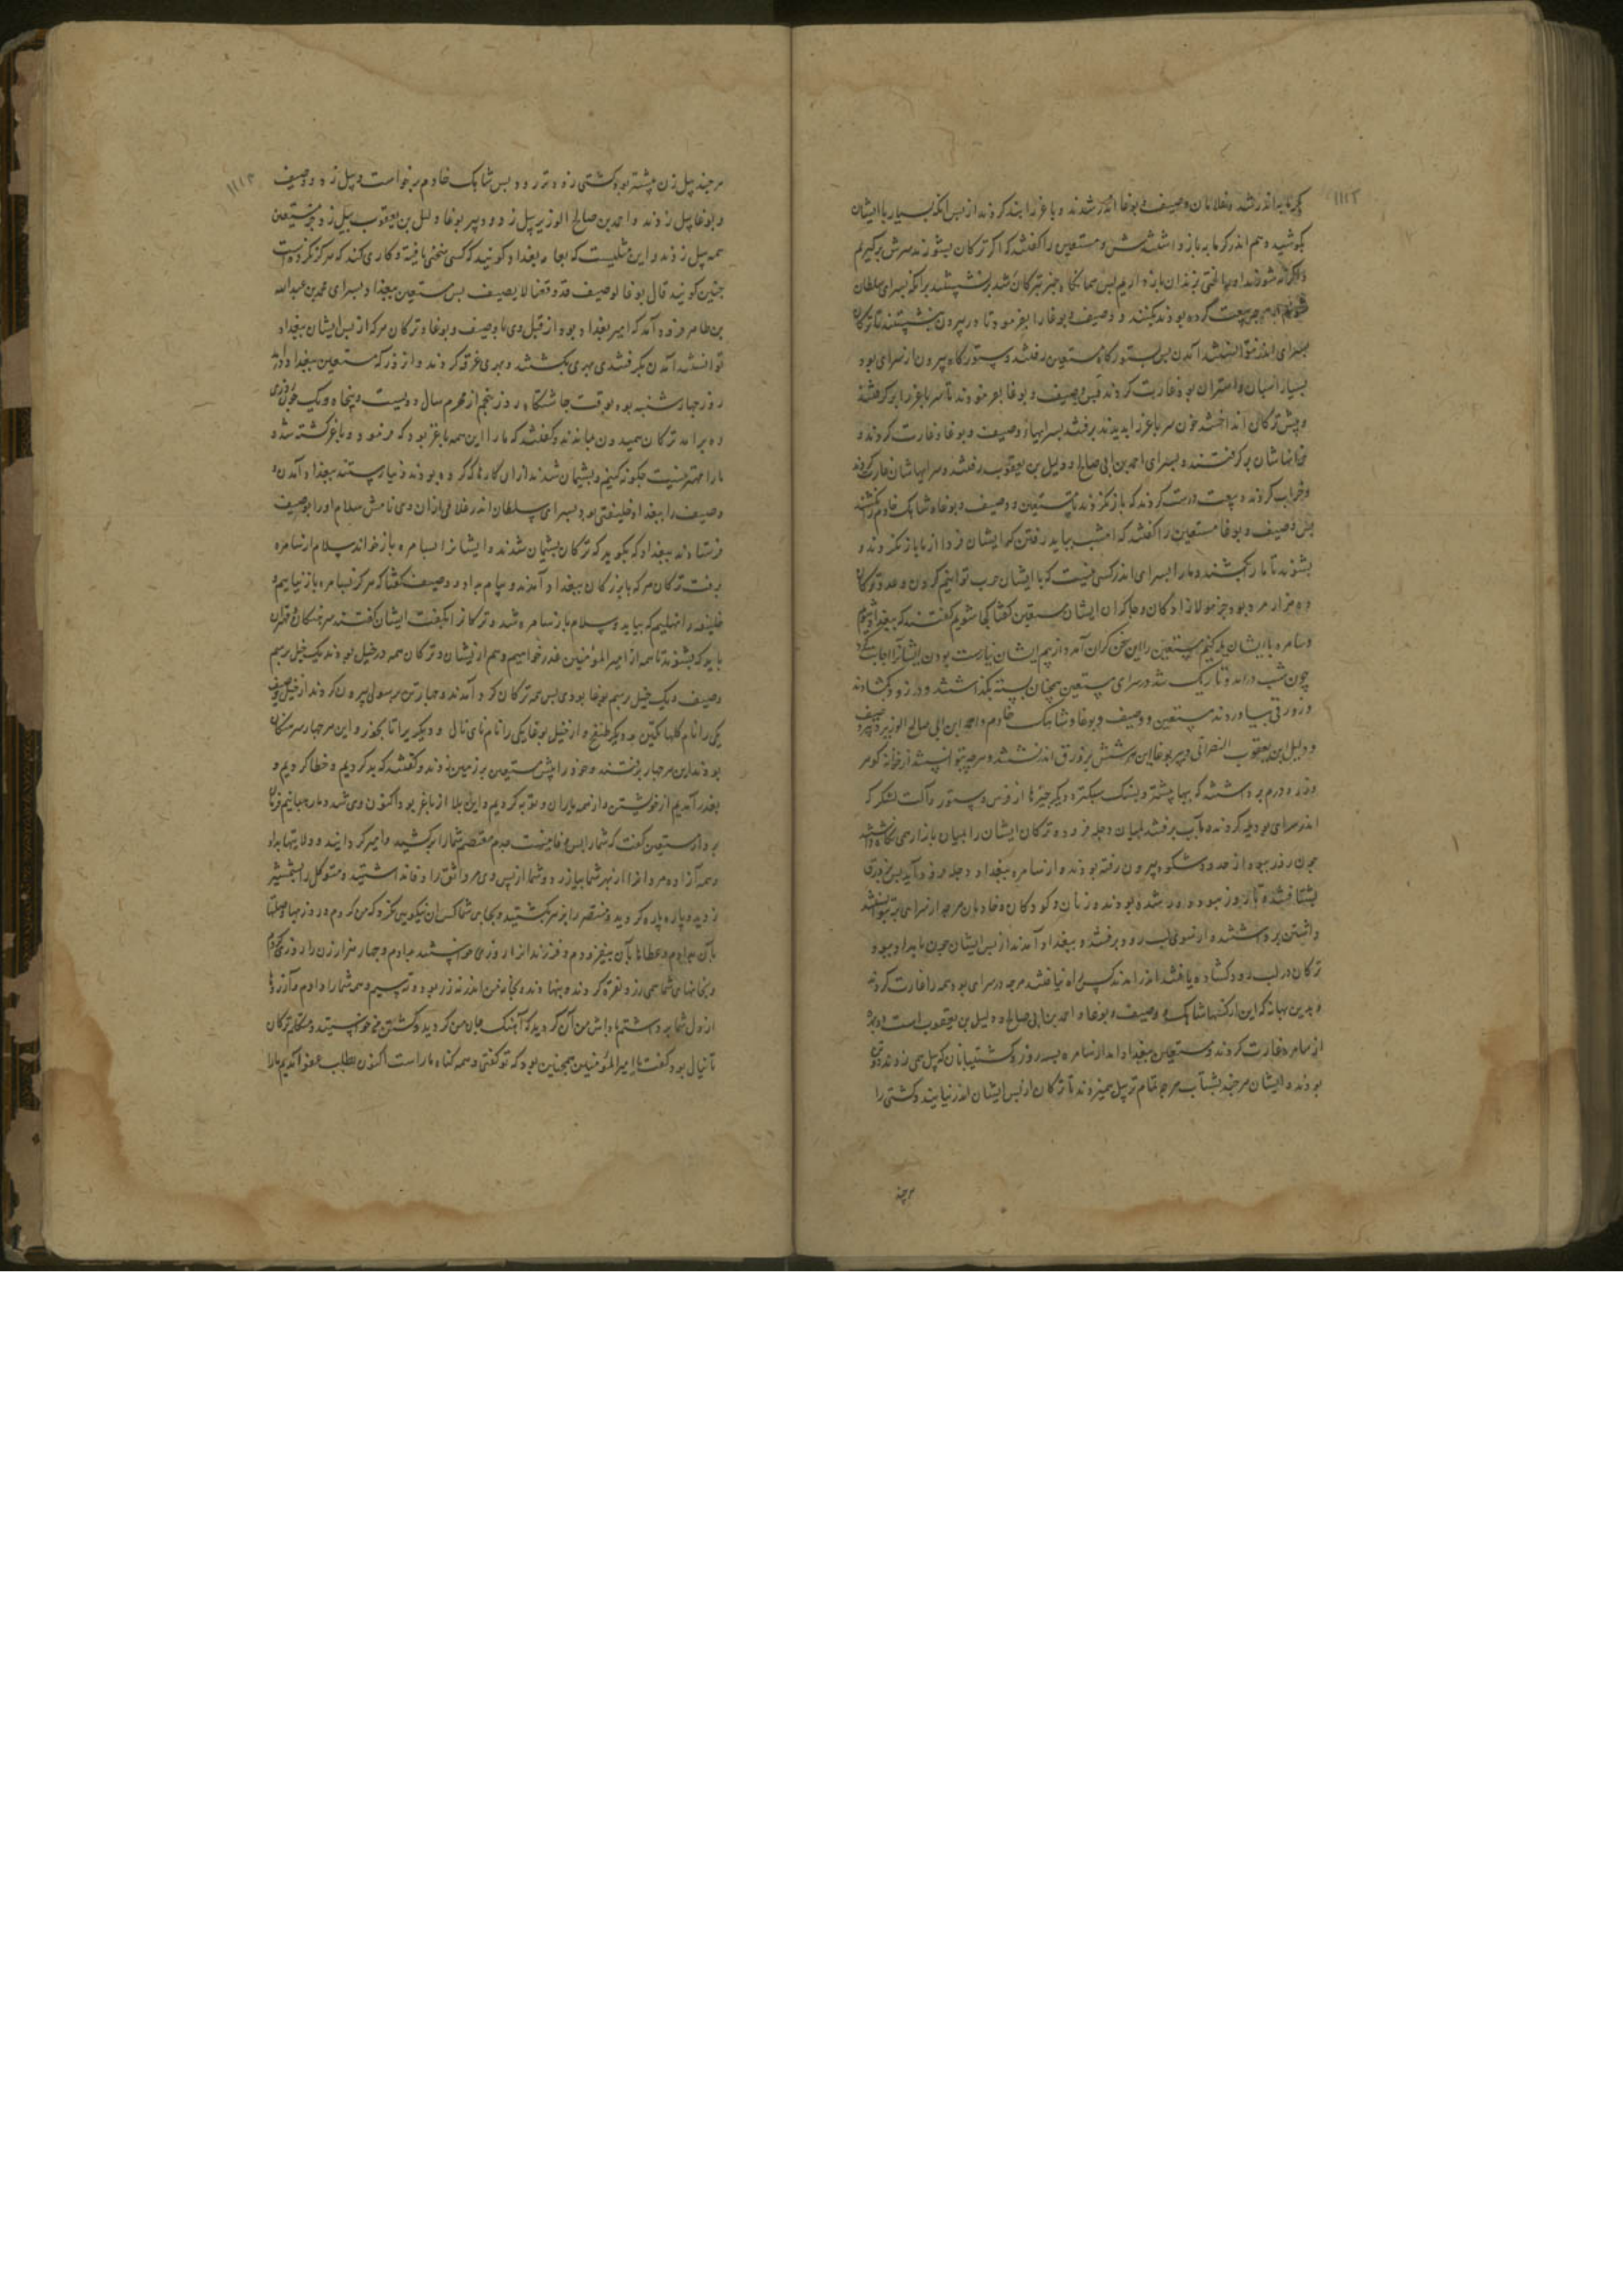 ۱۱۱۳
کرمابه اندر شد و غلامان وصیف و بوغا اندر شدند و باغر را بند کردند از پس انکه بسیار با ایشان
بکوشید و هم اندر کرمابه باز داشتندش و مستعین را کفتند که اکر ترکان بشورند سرش برکیریم
بیعت کرده بودند بکنند و وصیف و بوغا را بفرمود تا در بیرون بنشستند تا ترکان
بسرای اندر نتوانستند آمدن بس بستورکاه مستعین رفتند و ستورکاه بیرون از سرای بود
بسیار اسبان و استران بود غارت کردند وصیف و بوغا بفرمودند تا سر باغر را برکرفتند
و پیش ترکان انداختند چون سر باغر بدیدند برفتند بسرایهاء وصیف و بوغا و غارت کردند و
برکرفتند و بسرای احمد بن ابی صالح و دلیل بن یعقوب رفتند و سرایهاشان غارت کردند
و خراب کردند و بیعت درست کردند که باز نکردند تا مستعین و وصیف و بوغا و شاهک خادم را نکشند
بس وصیف و بوغا مستعین را کفتند که امشب بباید رفتن که ایشان فردا از ما باز نکردند و
بشوند تا ما را بکشند و ما را بسرای اندر کسی نیست که با ایشان حرب توانیم کردن و عدد ترکان
ده هزار مرد بود جز مولازادکان و چاکران ایشان مستعین کفتا کجا شویم کفتند که ببغداد شویم
و سامره با ایشان یله کنیم مستعین را این سخن کران آمد و از بیم ایشان نیارست بودن ایشانرا اجابت کرد
چون شب درآمد و تاریک شد در سرای مستعین همچنان بسته بکذاشتند و در رود کشادند
و زورقی بیاوردند مستعین و وصیف و بوغا و شاهک خادم و احمد ابن ابی صالح الوزیر دبیر وصیف
و دلیل ابن یعقوب النصرانی دبیر بوغا این هر شش بزورق اندر نشستند و هرچه توانستند از خانه کوهر
و زر و درم برداشتند که بها بیشتر و بسنک سبکتر و دیکر چیزها از فرس و ستور و آلت لشکر که
اندر سرای بود یله کردند و بآب برفتند بمیان دجله فرود و ترکان ایشان را بمیان بازار همی نکاه داشتند
چون روز ببود از حدود شکوه بیرون رفته بودند و از سامره ببغداد دجله فرود آید بس زورق
بشتافتند تا روز ببود دور شده بودند و زنان و کودکان و خادمان هرچه از سرای
داشتن برداشتند و از سوی لب رود برفتند و ببغداد آمدند از بس ایشان چون بامداد ببود
ترکان در لب رود کشاده یافتند اندر آمدند کس را نیافتند هرچه در سرای بود همه را غارت کردند
و بدین بهانه که این از کنها شاهک و وصیف و بوغا و احمد بن ابی صالح و دلیل بن یعقوب است
از سامره غارت کردند و مستعین ببغداد آمد از سامره بسه روز و کشتیبانان که بیل همی زدند
بودند و ایشان هرچند بشتاب هرچه تمام‌تر بیل همیزدند تا ترکان از بس ایشان اندر نیایند و کشتی را
هرچند
۱۱۱۴
هرچند بیل زن بیشتر بود کشتی زودتر رود بس شاهک خادم برخواست و بیل زد و وصیف
و بوغا بیل زدند و احمد بن صالح الوزیر بیل زد و دبیر بوغا دلیل بن یعقوب بیل زد و مستعین
همه بیل زدند و این مثلیست که بعامه بغداد کویند که کسی سختی یافته و کاری کند که هرکز نکرده است
چنین کویند قال بوغا لوصیف قد وقعنا لا یصیف بس مستعین ببغداد و بسرای محمد بن عبدالله
بن طاهر فرود آمد که امیر بغداد بود از قبل وی با وصیف و بوغا و ترکان هرکه از بس ایشان ببغداد
توانستند آمدن بکرفتندی بهری بکشتند و بهری غرق کردند و از روز که مستعین ببغداد اندر
روز چهارشنبه بود بوقت چاشتکاه روز پنجم از محرم سال دویست و پنجاه و یک چون روزی
ده برآمد ترکان همیدون بماندند و کفتند که ما را این همه باغر بود که فرمود و باغر کشته شد و
ما را مهتر نیست چکونه کنیم و بشیمان شدند از ان کارها که کرده بودند و نیارستند ببغداد آمدن و
وصیف را ببغداد خلیفتی بود و بسرای سلطان اندر غلامی ازان وی نامش سلام او را بوصیف
فرستادند ببغداد که بکوید که ترکان بشیمان شدند و ایشانرا بسامره باز خواند سلام از سامره
برفت ترکان هرکه با بزرکان ببغداد آمدند و پیام بداد و وصیف کفتا که هرکز بسامره باز نیاییم و
خلیفه را نهلیم که بیاید و سلام باز سامره شد و ترکانرا بکفت ایشان کفتند سرهنکان و مهتران
باید که بشوند تا همه از امیرالمؤمنین عذر خواهیم و هم از ایشان و ترکان همه در خیل بودند یک خیل برسم
وصیف و یک خیل برسم بوغا بودی بس همه ترکان کرد آمدند و چهار تن برسولی بیرون کردند از خیل وصیف
یکی را نام کلباتکین و دیکر طنغج و از خیل بوغا یکی را نام نای نال و دیکر را تا بجذر و این هر چهار سرهنکان
بودند این هر چهار برفتند و خود را پیش مستعین بر زمین زدند و کفتند که بد کردیم و خطا کردیم و
بعذر آمدیم از خویشتن و از همه یاران و توبه کردیم و این بلا از باغر بود و اکنون وی شد و ما
مستعین کفت که شما را بس وفا نیست جدم معتصم شما را برکشید و امیر کردانید و ولایتها بداد
و همه آزاده مردانرا از بهر شما بیازرد و شما از پس وی مر واثق را وفا نداشتید و متوکل را بشمشیر
زدید و پاره پاره کردید و منتصر را بزهر بکشتید و بجای شما کس آن نیکویی نکرد که من کردم و روزیها و صلتها
بآن بدادم و عطاها بآن بیفزودم و فرزندانرا روزی خواستند بدادم و چهار هزار زن را روزی کردم
و بخانهای شما همی زر و نقره کردند و بنهادند و بخانه من اندر نه زر بود و نه سیم و همه شما را دادم و آزردها
از دل شما برداشتم پاداش من آن کردید که آهنک جان من کردید و کشتن من خواستید و متکلم ترکان
نای نال بود و کفت یا امیرالمؤمنین همچنین بود که تو کفتی و همه کناه ما راست اکنون بطلب عفو آمدیم ما را